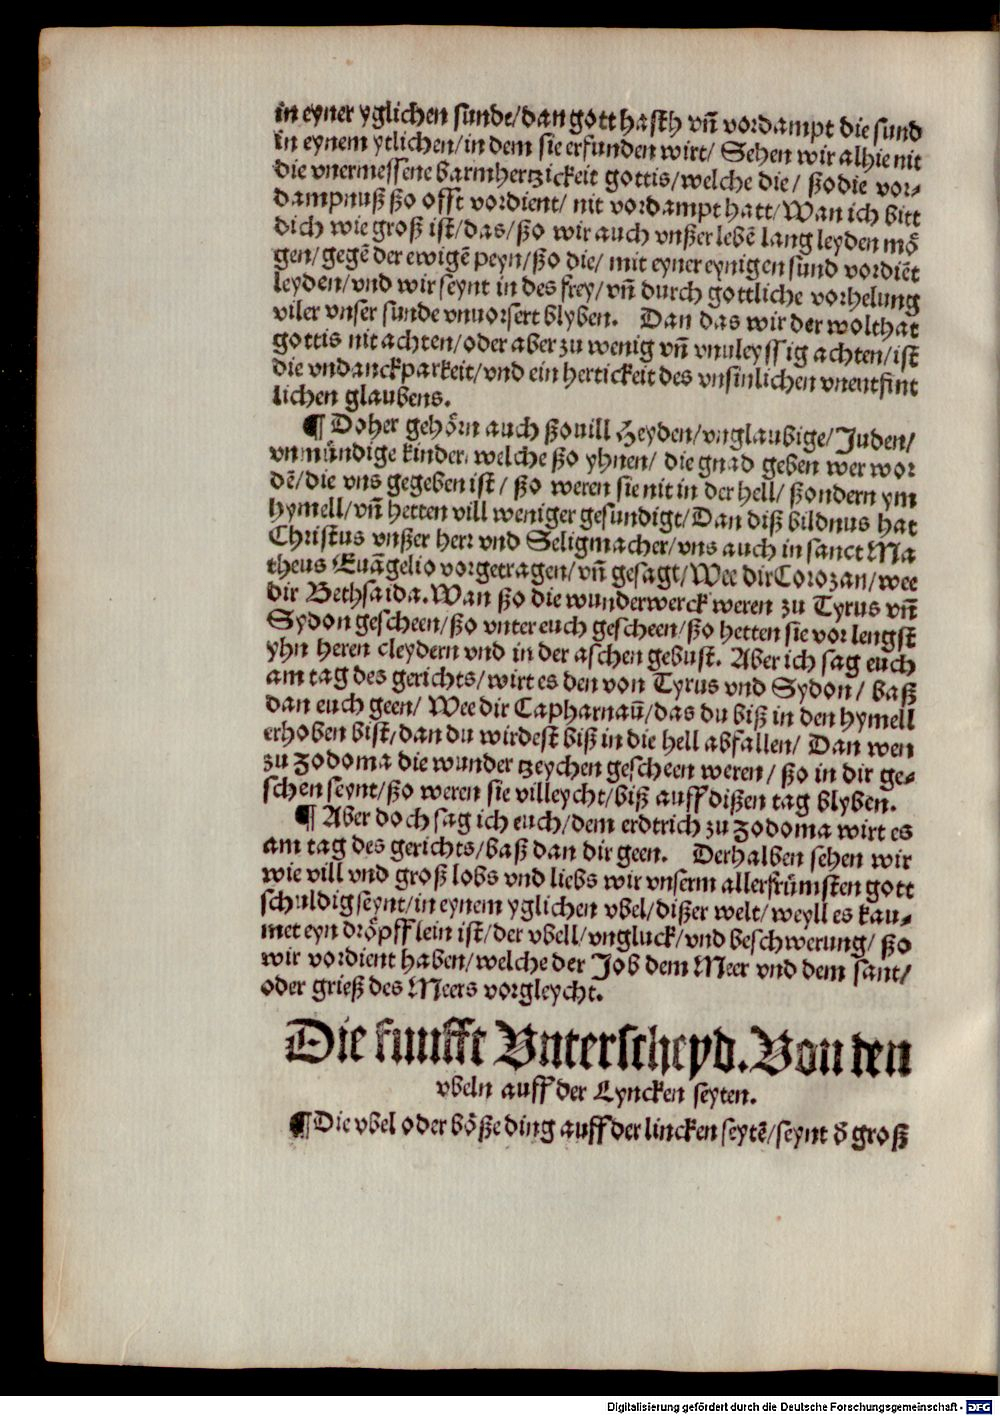 in eyner yglichen sunde/dan gott hasth vñ vordampt die sund
in eynem ytlichen/in dem sie erfunden wirt/ Sehen wir alhie nit
die vnermessene barmhertzickeit gottis/welche die/ ßo die vor-
dampnuß ßo offt vordient/ nit vordampt hatt/Wan ich bitt
dich wie groß ist/das/ßo wir auch vnßer lebẽ lang leyden mö
gen/gegẽ der ewigẽ peyn/ßo die/ mit eyner eynigen sund vordiẽt
leyden/vnd wir seynt in des frey/vñ durch gottliche vorhelung
viler vnser sunde vnuorsert blyben. Dan das wir der wolthat
gottis nit achten/oder aber zu wenig vñ vnuleyssig achten/ist
die vndanckparkeit/vnd ein hertickeit des vnsinlichen vnentfint
lichen glaubens.
¶ Doher gehörn auch ßouill Heyden/vnglaubige/Juden/
vnmündige kinder/ welche ßo yhnen/ die gnad geben wer wor
dẽ/die vns gegeben ist/ ßo weren sie nit in der hell/ ßondern ym
hymell/vñ hetten vill weniger gesundigt/Dan diß bildnus hat
Christus vnßer herr vnd Seligmacher/vns auch in sanct Ma
theus Euãgelio vorgetragen/vñ gesagt/Wee dir Corozan/wee
dir Bethsaida. Wan ßo die wunderwerck weren zu Tyrus vñ
Sydon gescheen/ßo vnter euch gescheen/ßo hetten sie vor lengst
yhn heren cleydern vnd in der aschen gebust. Aber ich sag euch
am tag des gerichts/wirt es den von Tyrus vnd Sydon/ baß
dan euch geen/ Wee dir Capharnaũ/das du biß in den hymell
erhoben bist/dan du wirdest biß in die hell abfallen/ Dan wen
zu Zodoma die wunder tzeychen gescheen weren/ ßo in dir ge-
schen seynt/ßo weren sie villeycht/biß auff dißen tag blyben.
¶ Aber doch sag ich euch/dem erdtrich zu Zodoma wirt es
am tag des gerichts/baß dan dir geen. Derhalben sehen wir
wie vill vnd groß lobs vnd liebs wir vnserm allerfrümsten gott
schuldig seynt/in eynem yglichen vbel/dißer welt/weyll es kau-
met eyn dröpfflein ist/der vbell/vngluck/vnd beschwerung/ ßo
wir vordient haben/welche der Job dem Meer vnd dem sant/
oder grieß des Meers vorgleycht.
Die funfft Vnterscheyd. Von den
vbeln auff der Lyncken seyten.
¶ Die vbel oder böße ding auff der lincken seytẽ/seynt ð groß
Digitalisierung gefördert durch die Deutsche Forschungsgemeinschaft - DFG